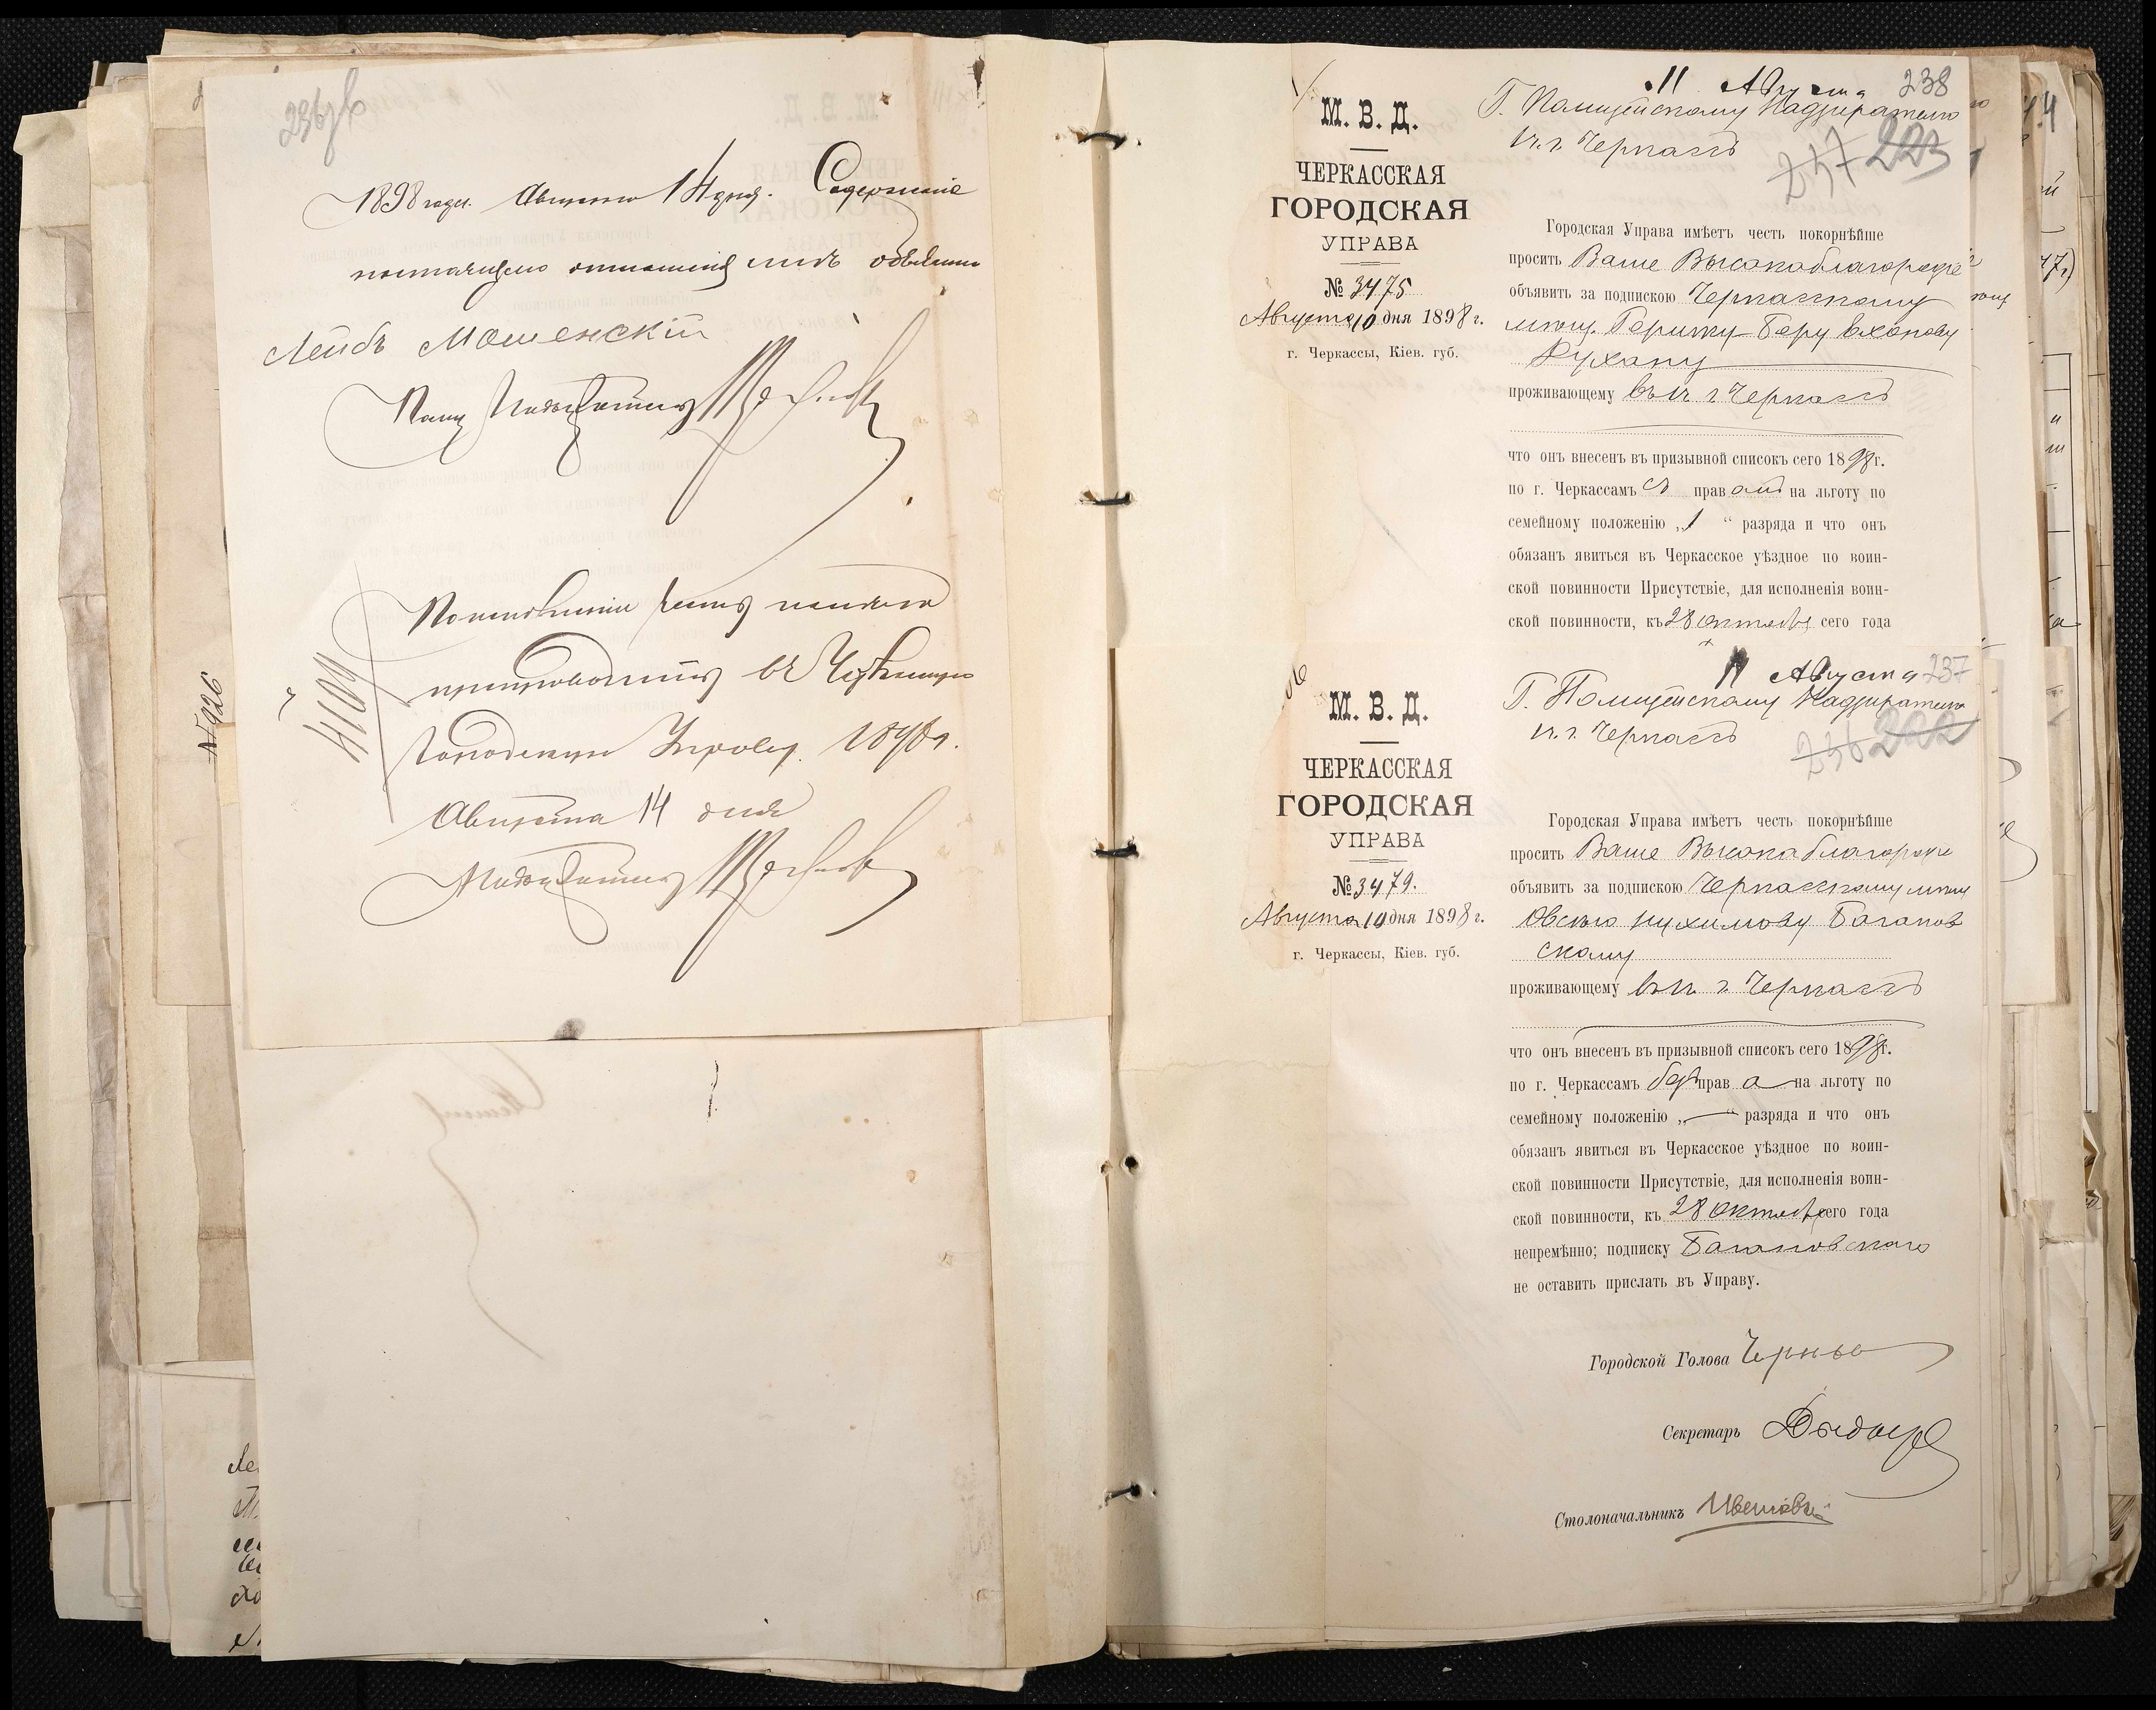 236 об
1898 года Августа 14 дня. Содержаніе
настоящаго отношенія мнѣ объявлено
Лейбъ Мошенскій
Полиц Надзиратель
4109
По исполненіи
препроводить въ Черкасскую
Городскую Управу. 1898 г.
Августа 14 дня
Надзиратель
№ 926
11 Августа 238
Г. Полицейскому Надзирателю
1 ч. г. Черкассъ
237 223
М. В. Д.
ЧЕРКАССКАЯ
ГОРОДСКАЯ
УПРАВА
№ 3475
Августа 10 дня 1898 г.
г. Черкассы, Кіев. губ.
Городская Управа имѣетъ честь покорнѣйше
просить Ваше Высокоблагородіе
объявить за подпискою Черкасскому
мѣщ. Гершку-Беру
Рухану
проживающему въ 1 ч г. Черкассъ
что онъ внесенъ въ призывной списокъ сего 1898 г.
по г. Черкассамъ съ правомъ на льготу по
семейному положенію „1“ разряда и что онъ
обязанъ явиться въ Черкасское уѣздное по воин-
ской повинности Присутствіе, для исполненія воин-
ской повинности, къ 28 октября сего года
11 Августа 237
Г. Полицейскому Надзирателю
1 ч. г. Черкассъ
236 222
М. В. Д.
ЧЕРКАССКАЯ
ГОРОДСКАЯ
УПРАВА
№ 3479.
Августа 10 дня 1898 г.
г. Черкассы, Кіев. губ.
Городская Управа имѣетъ честь покорнѣйше
просить Ваше Высокоблагородіе
объявить за подпискою Черкасскому мѣщ
Овсѣю Нухимову Баганов
скому
проживающему въ 1 ч г. Черкассъ
что онъ внесенъ въ призывной списокъ сего 1898 г.
по г. Черкассамъ безъ права на льготу по
семейному положенію „—“ разряда и что онъ
обязанъ явиться въ Черкасское уѣздное по воин-
ской повинности Присутствіе, для исполненія воин-
ской повинности, къ 28 октября сего года
непремѣнно; подписку Багановскаго
не оставить прислать въ Управу.
Городской Голова
Секретарь
Столоначальникъ